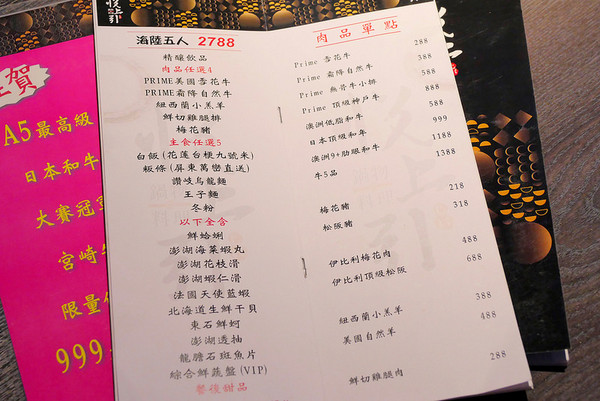 賀
A5最高級
日本和牛
大賽冠
宮崎
限量
999
海陸五人 2788
精釀飲品
肉品任選4
PRIME美國雪花牛
PRIME霜降自然牛
紐西蘭小羔羊
鮮切雞腿排
梅花豬
主食任選5
白飯(花蓮台梗九號米)
粄條(屏東萬巒直送)
讚岐烏龍麵
王子麵
冬粉
以下全含
鮮蛤蜊
澎湖海菜蝦丸
澎湖花枝滑
澎湖蝦仁滑
法國天使藍蝦
北海道生鮮干貝
東石鮮蚵
澎湖透抽
龍膽石斑魚片
綜合鮮蔬盤(VIP)
餐後甜品
肉品單點
Prime 雪花牛 288
Prime 霜降自然牛 388
Prime 無骨牛小排 588
Prime 頂級神戶牛 888
澳洲低脂和牛 588
日本頂級和牛 999
澳洲9+肋眼和牛 1188
牛5品 1388
梅花豬 218
松阪豬 318
伊比利梅花肉 488
伊比利頂級松阪 688
紐西蘭小羔羊 388
美國自然羊 488
鮮切雞腿肉 288